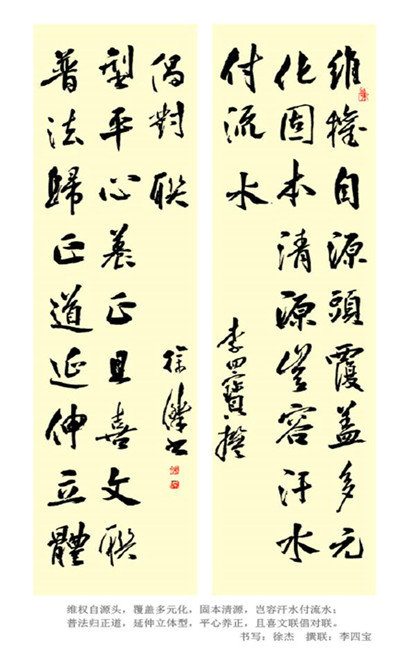 維權自源頭覆盖多元
化固本清源豈容汗水
付流水
李四寶撰
普法歸正道延伸立體
型平心養正且喜文聯
倡對聯
徐傑书
维权自源头，覆盖多元化，固本清源，岂容汗水付流水；
普法归正道，延伸立体型，平心养正，且喜文联倡对联。
书写：徐杰 撰联：李四宝